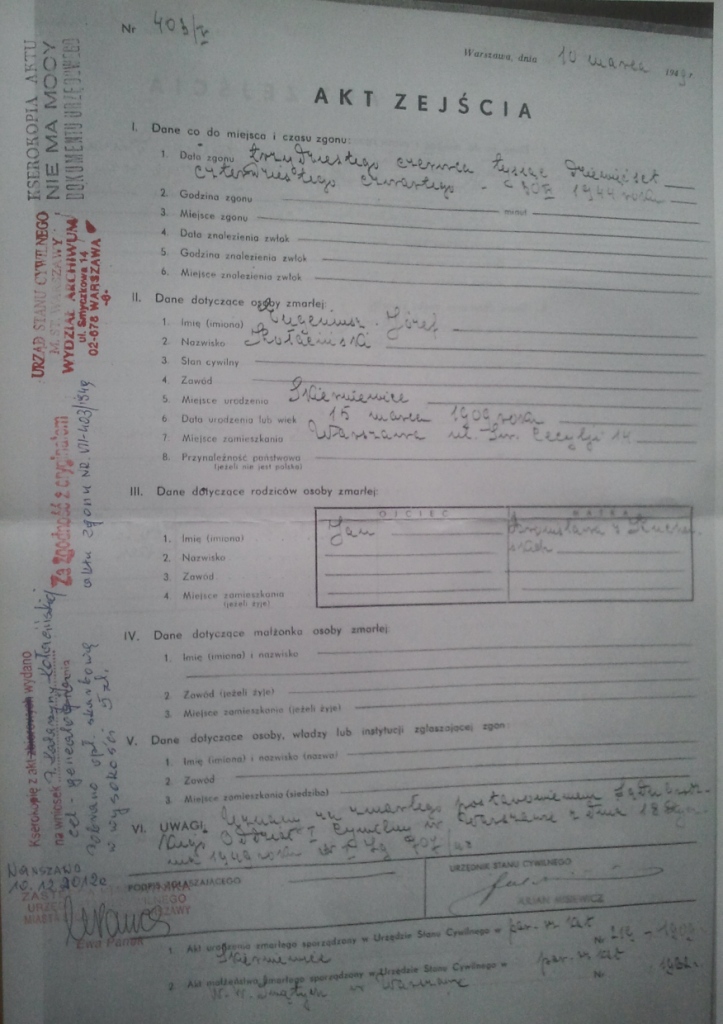 Nr 403/V
Warszawa, dnia 10 marca 1949 r.
AKT ZEJŚCIA
I. Dane co do miejsca i czasu zgonu:
1. Data zgonu trzydziestego czerwca tysiąc dziewięćset
czterdziestego czwartego - 1944 roku
2. Godzina zgonu minut
3. Miejsce zgonu
4. Data znalezienia zwłok
5. Godzina znalezienia zwłok
6. Miejsce znalezienia zwłok
II. Dane dotyczące osoby zmarłej:
1. Imię (imiona) Eugeniusz Józef
2. Nazwisko
3. Stan cywilny
4. Zawód
5. Miejsce urodzenia Skierniewice
6. Data urodzenia lub wiek 15 marca 1909 roku
7. Miejsce zamieszkania Warszawa ul. Św. Cecylji 14
8. Przynależność państwowa
(jeżeli nie jest polska)
III. Dane dotyczące rodziców osoby zmarłej:
OJCIEC MATKA
1. Imię (imiona) Jan Bronisława z
2. Nazwisko
3. Zawód
4. Miejsce zamieszkania
(jeżeli żyje)
IV. Dane dotyczące małżonka osoby zmarłej
1. Imię (imiona) i nazwisko
2. Zawód (jeżeli żyje)
3. Miejsce zamieszkania (jeżeli żyje)
V. Dane dotyczące osoby, władzy lub instytucji zgłaszającej zgon
1. Imię (imiona) i nazwisko (nazwa)
2. Zawód
3. Miejsce zamieszkania (siedziba)
VI. UWAGI: Uznany za zmarłego postanowieniem Sądu Grodz-
kiego Oddział I Cywilny w Warszawie z dnia 18 stycz-
nia 1949 roku Zg
PODPIS ZGŁASZAJĄCEGO
URZĘDNIK STANU CYWILNEGO
JULIAN
1. Akt urodzenia zmarłego sporządzony w Urzędzie Stanu Cywilnego w par. rz. kat
Skierniewice Nr 1909
2. Akt małżeństwa zmarłego sporządzony w Urzędzie Stanu Cywilnego w par. rz. kat
W. W. Świętych w Warszawie Nr
KSEROKOPIA AKTU
NIE MA MOCY
DOKUMENTU URZĘDOWEGO
URZĄD STANU CYWILNEGO
M. ST. WARSZAWY
WYDZIAŁ ARCHIWUM
ul. Smyczkowa 14
02-678 WARSZAWA
-8-
Za zgodność z oryginałem
aktu zgonu NR. VII-403/1949
Kserokopię z akt zbiorowych wydano
na wniosek P. Katarzyny Kołacińskiej
cel - genealogiczny
Pobrano opł. skarbową
w wysokości 5 zł.
Warszawa
10.12.2012r.
Ewa